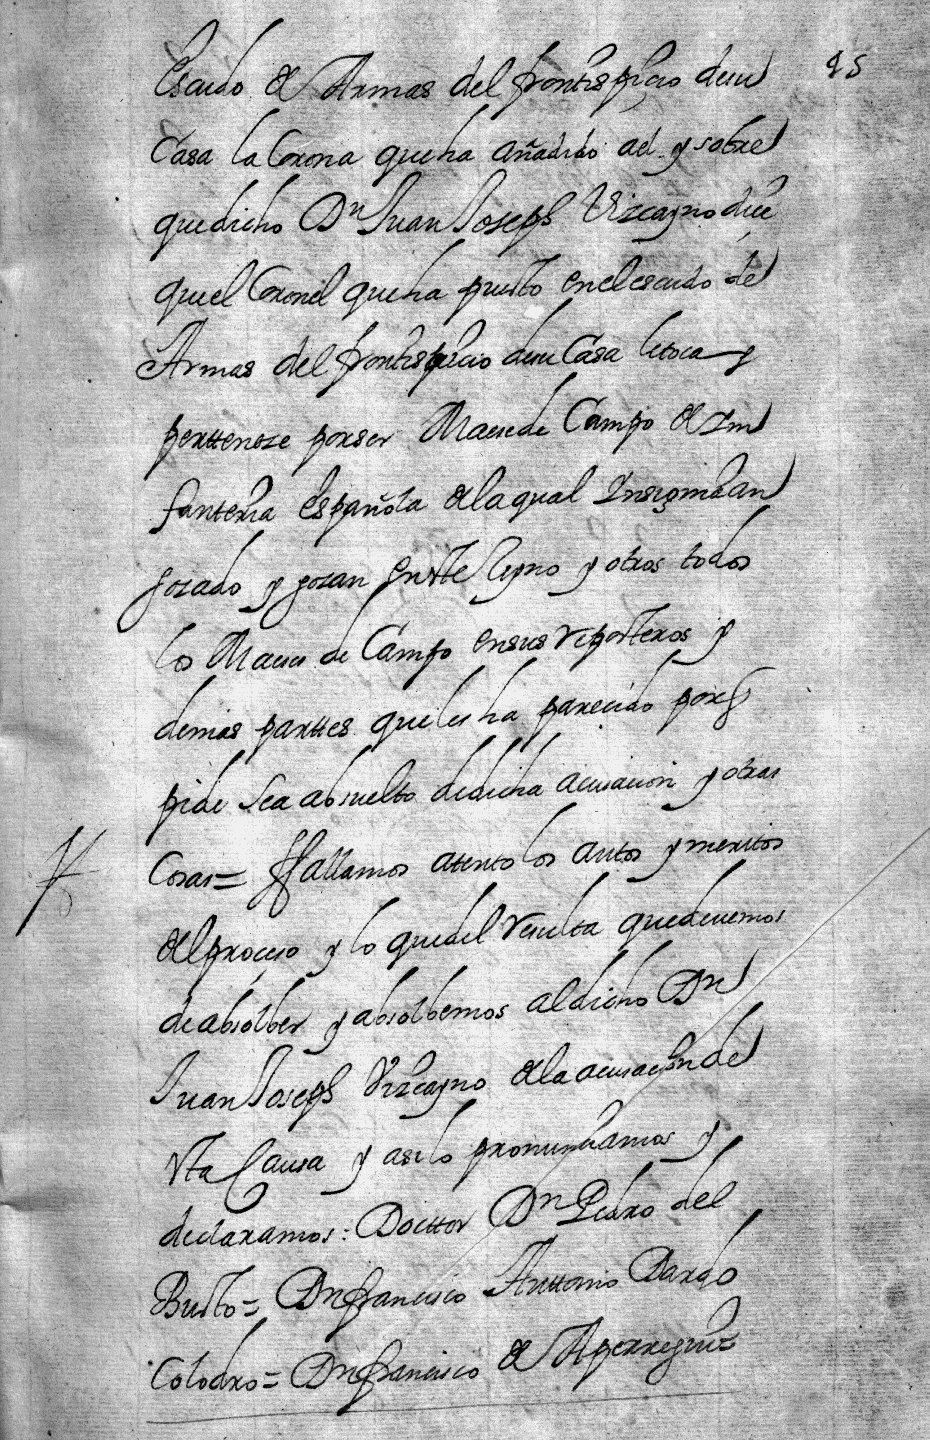 45
Escudo de Armas del frontispicio desu
Casa la Corona queha añadido ael y sobre
quedicho Dn Juan Joseph Vizcayno dice
quel Coronel queha puesto enelescudo de
Armas del frontispicio desu Casa letoca y
pertteneze porser Maese de Campo de Im
fanteria española dela qual Insignia an
gozado y gozan enste Reyno y otros todos
los Maeses de Campo ensus reposteros y
demas parttes que les ha parecido porq
pide sea absuelto dedicha acusacion y otras
Cosas= ffallamos atento los autos y meritos
del proceso y lo quedel resulta quedevemos
de absolber y absolbemos al dicho Dn
Juan Joseph Vizcayno dela acusacion de
esta Causa y asi lo pronunciamos y
declaramos: Docttor Dn Pedro del
Busto= Dn francisco Anttonio Dardo
Colodro= Dn francisco de Aperregui=